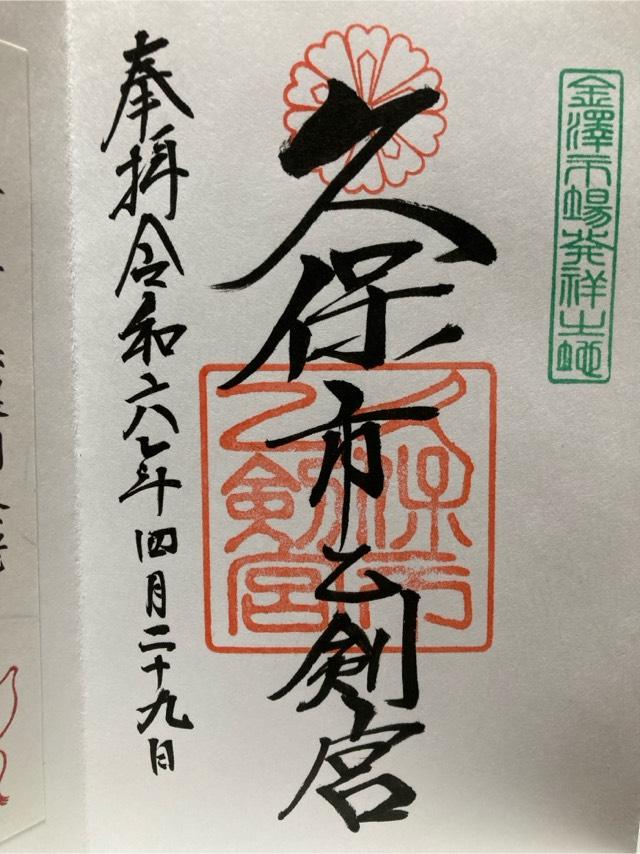 金澤市場発祥之地
久保市乙剣宮
久保市
乙剣宮
奉拝令和六年四月二十九日